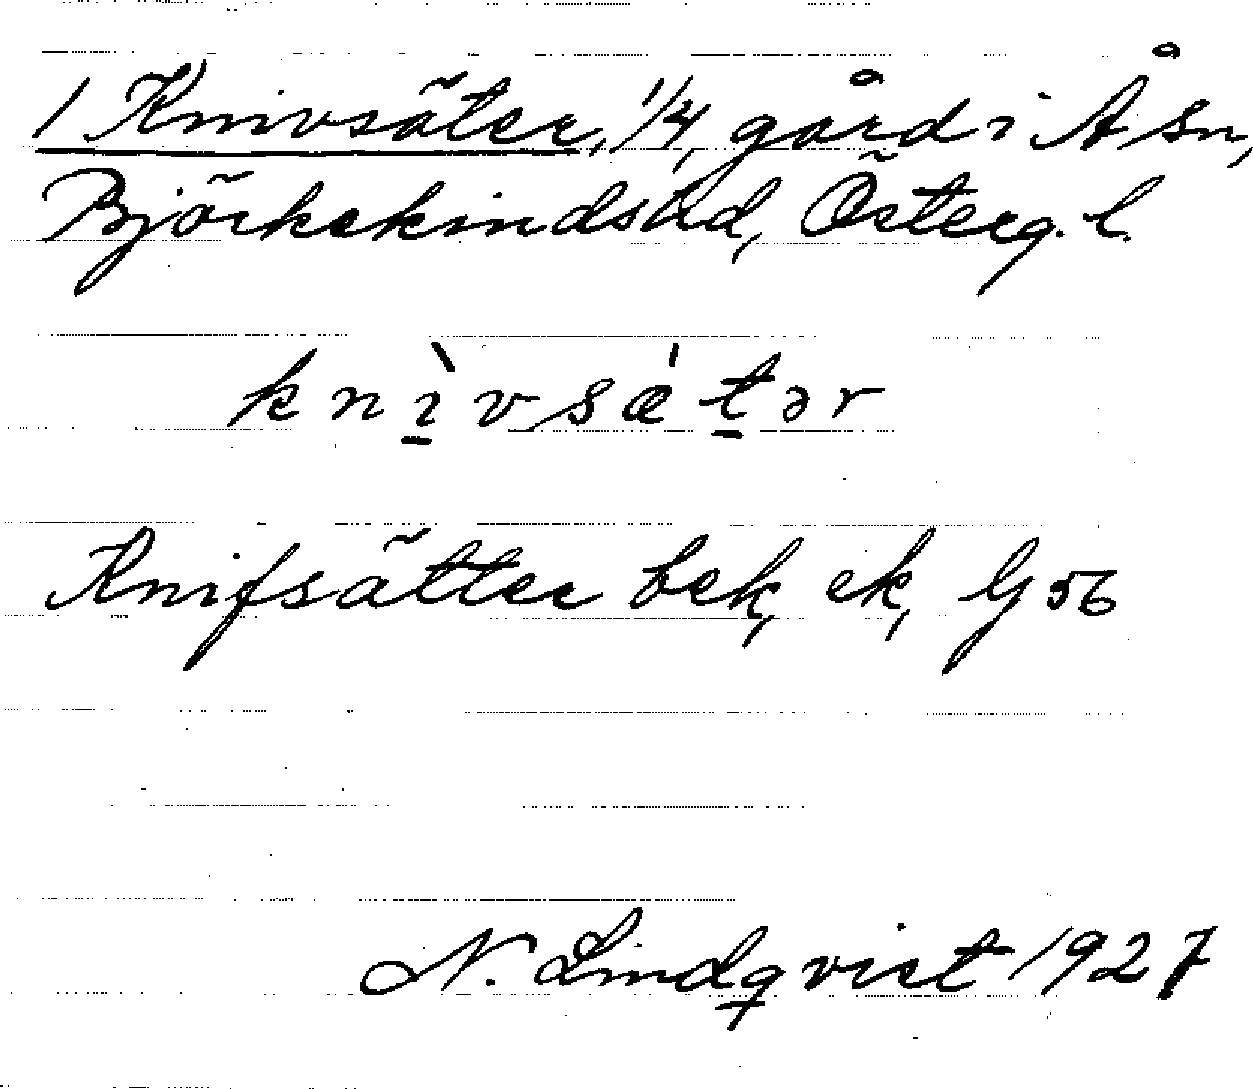 1 Knivsäter, 1/4, gård i Å sn,
Björkekinds hd, Österg. l.
knìvsǽtər
Knifsätter bek, ek, G 56
N. Lindqvist 1927